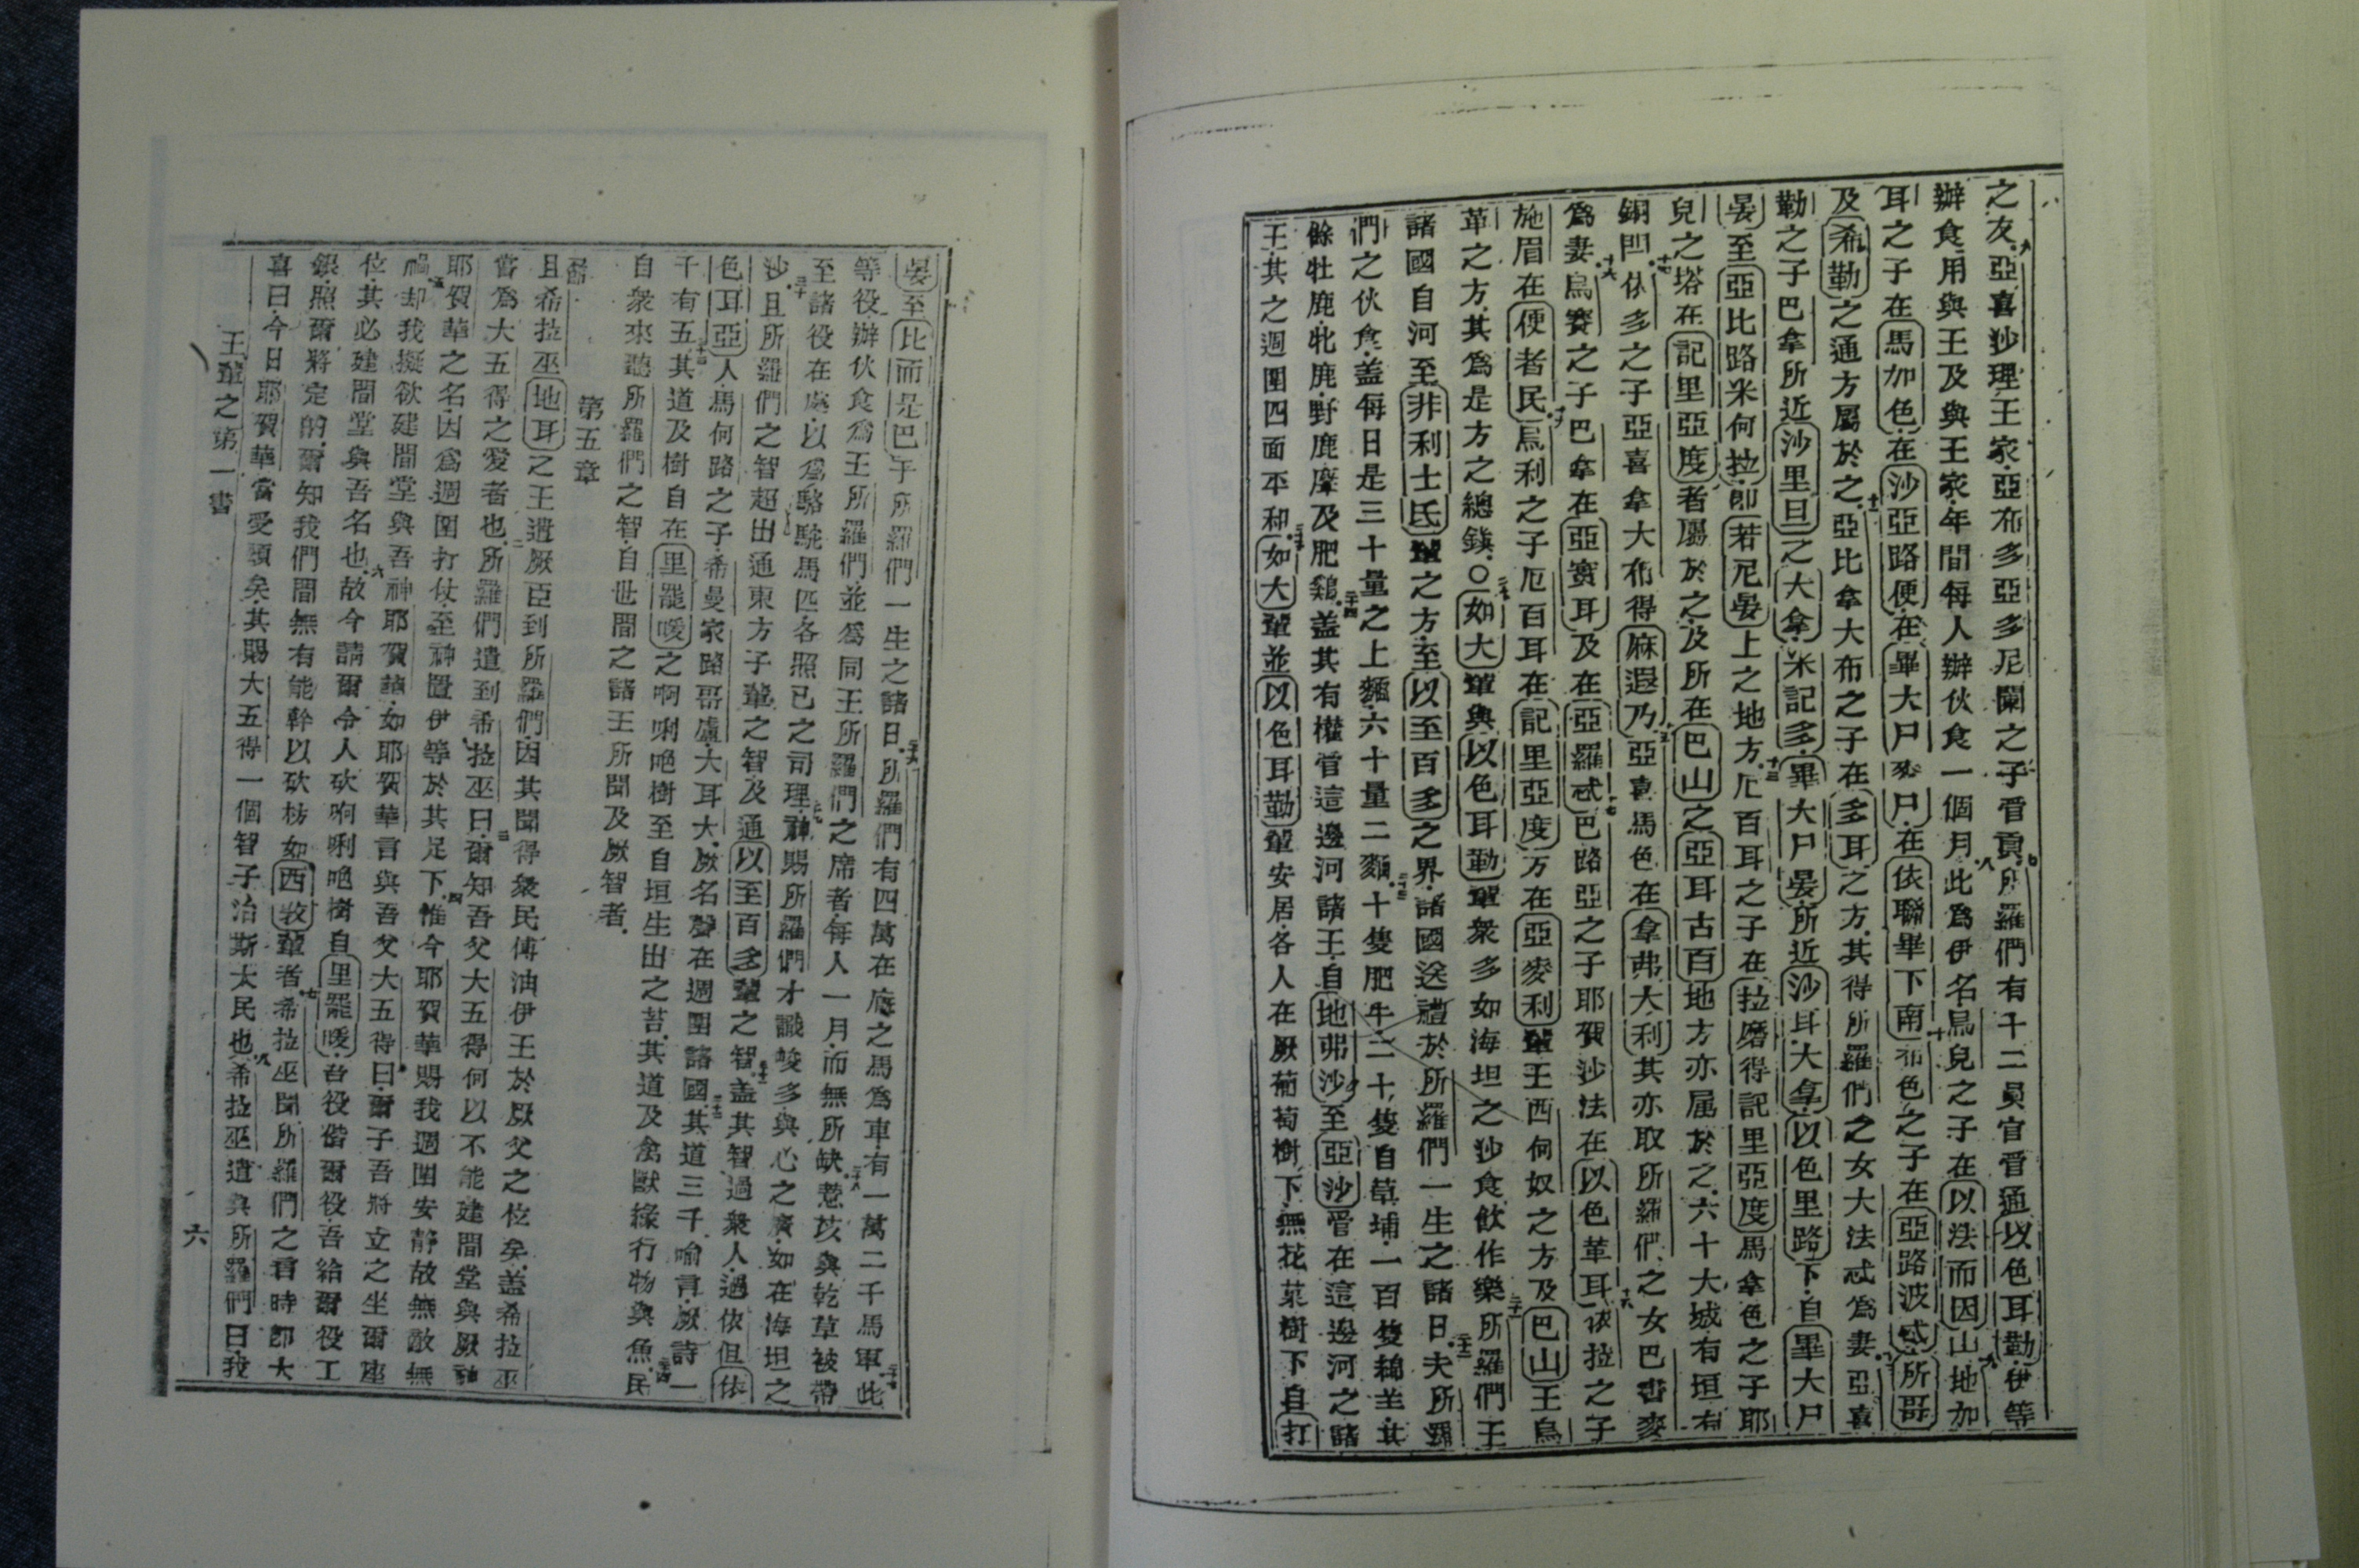 之友六亞喜沙理王家亞布多亞多尼闌之子晋貢七所羅們有十二員官晋通以色耳勒伊等
辦食用與王及與王家年間每人辦伙食一個月八此爲伊名烏兒之子在以法而因山九地加
耳之子在馬加色在沙亞路便在畢大尸麥尸在依聯畢下南十布色之子在亞路波忒所哥
及希勒之通方屬於之十一亞比拿大布之子在多耳之方其得所羅們之女大法忒爲妻亞喜
勒之子巴拿所近沙里旦之大拿米記多畢大尸晏所近沙耳大拿以色里路下自畢大尸
晏至亞比路米何拉即若尼晏上之地方十三厄百耳之子在拉磨得記里亞度馬拿色之子耶
兒之塔在記里亞度者屬於之及所在巴山之亞耳古百地方亦属於之六十大城有垣有
銅閂十四依多之子亞喜拿大布得麻遐乃十五亞喜馬色在拿弗大利其亦取所羅們之女巴書麥
爲妻十六烏賽之子巴拿在亞實耳及在亞羅忒十七巴路亞之子耶賀沙法在以色革耳十八依拉之子
施眉在便者民十九烏利之子厄百耳在記里亞度方在亞麥利輩王西何奴之方及巴山王烏
革之方其爲是方之總鎮〇二十如大輩與以色耳勒輩衆多如海坦之沙食飲作樂二十一所羅們王
諸國自河至非利士氐輩之方至以至百多之界諸國送禮於所羅們一生之諸日二十二夫所羅
們之伙食盖每日是三十量之上麵六十量二麵二十三十隻肥牛二十隻自草埔一百隻綿羊其
餘牡鹿牝鹿野鹿麞及肥鷄二十四盖其有權管這邊河諸王自地弗沙至亞沙管在這邊河之諸
王其之週圍四面平和二十五如大輩並以色耳勒輩安居各人在厥葡萄樹下無花菓樹下自打
晏至比而是巴于所羅們一生之諸日二十六所羅們有四萬在廐之馬爲車有一萬二千馬軍二十七此
等役辦伙食爲王所羅們並爲同王所羅們之席者每人一月而無所缺二十八薏苡與乾草被帶
至諸役在處以爲駱駝馬匹各照己之司理二十九神賜所羅們才識峻多與心之廣如在海坦之
沙三十且所羅們之智超出通東方子輩之智及通以至百多輩之智三十一盖其智過衆人過依但依
色耳亞人馬何路之子希曼家路哥盧大耳大厥名聲在週圍諸國三十二其道三千喻言厥詩一
千有五三十三其道及樹自在里罷𠺝之啊唎吔樹至自垣生出之苔其道及禽獸緣行物與魚三十四民
自衆來聽所羅們之智自世間之諸王所聞及厥智者
第五章
一節 且希拉巫地耳之王遣厥臣到所羅們因其聞得衆民傅油伊王於厥父之位矣盖希拉巫
當爲大五得之愛者也二所羅們遣到希拉巫曰三爾知吾父大五得何以不能建間堂與厥神
耶賀華之名因爲週圍打仗至神置伊等於其足下四惟今耶賀華賜我週圍安靜故無敵無
禍五却我擬欲建間堂與吾神耶賀華如耶賀華言與吾父大五得曰爾子吾將立之坐爾座
位其必建間堂與吾名也六故今請爾令人砍啊唎吔樹自里罷𠺝吾役偕爾役吾給爾役工
銀照爾將定的爾知我們間無有能幹以砍枋如西敦輩者七希拉巫聞所羅們之言時即大
喜曰今日耶賀華當受頌矣其賜大五得一個智子治斯大民也八希拉巫遣與所羅們曰我
王輩之第一書 六